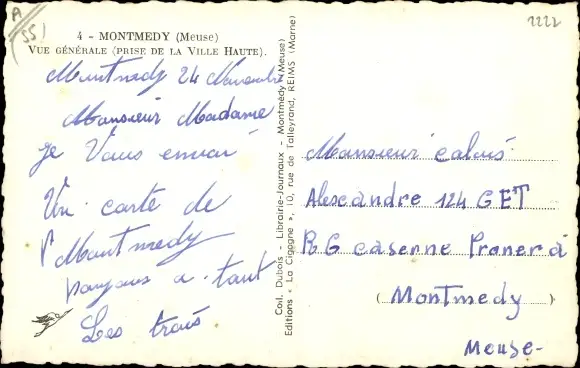 A
(55)
2222
4 - MONTMEDY (Meuse)
VUE GÉNÉRALE (PRISE DE LA VILLE HAUTE).
Montmedy 24 Novembre
Monsieur Madame
je Vous envoi
Un carte de
Montmedy
a tant
Les trois
Coll. Dubois - Librairie-Journaux - Montmédy (Meuse)
Editions « La Cigogne », 10, rue de Talleyrand, REIMS (Marne)
Monsieur calais
Alexcandre 124 GET
RG caserne
(Montmedy)
Meuse-